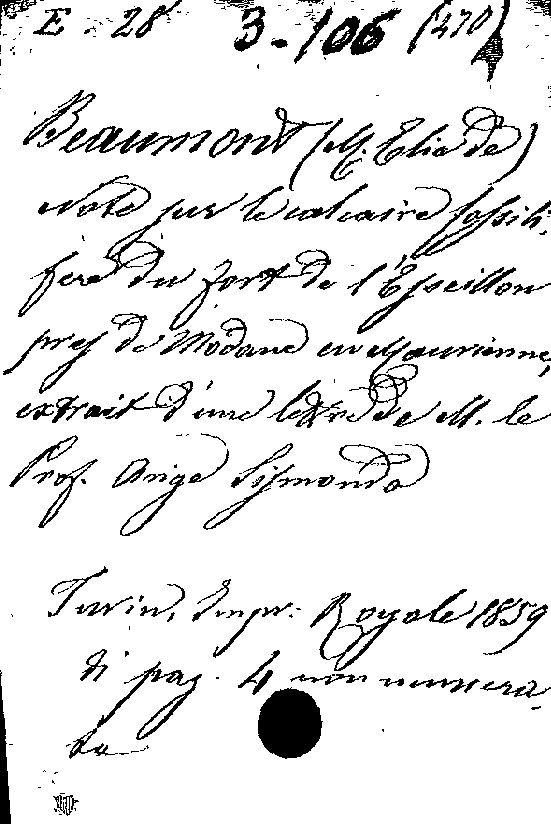 E. 28 3-106 (270)
Beaumont (M. Elie de)
Note sur le calcaire fossili-
fere du fort de l'Esseillon
pres de Modane en Maurienne,
extrait d'une lettre de M. le
Prof. Ange Sismonda
Turin, Impr. Royale 1859
di pag. 4 non numera-
te